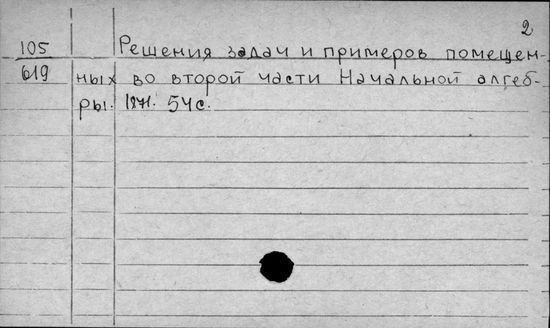 2
105 Решения задач и примеров помещен-
619 ных во второй части Начальной алгеб-
ры. 1871. 54с.